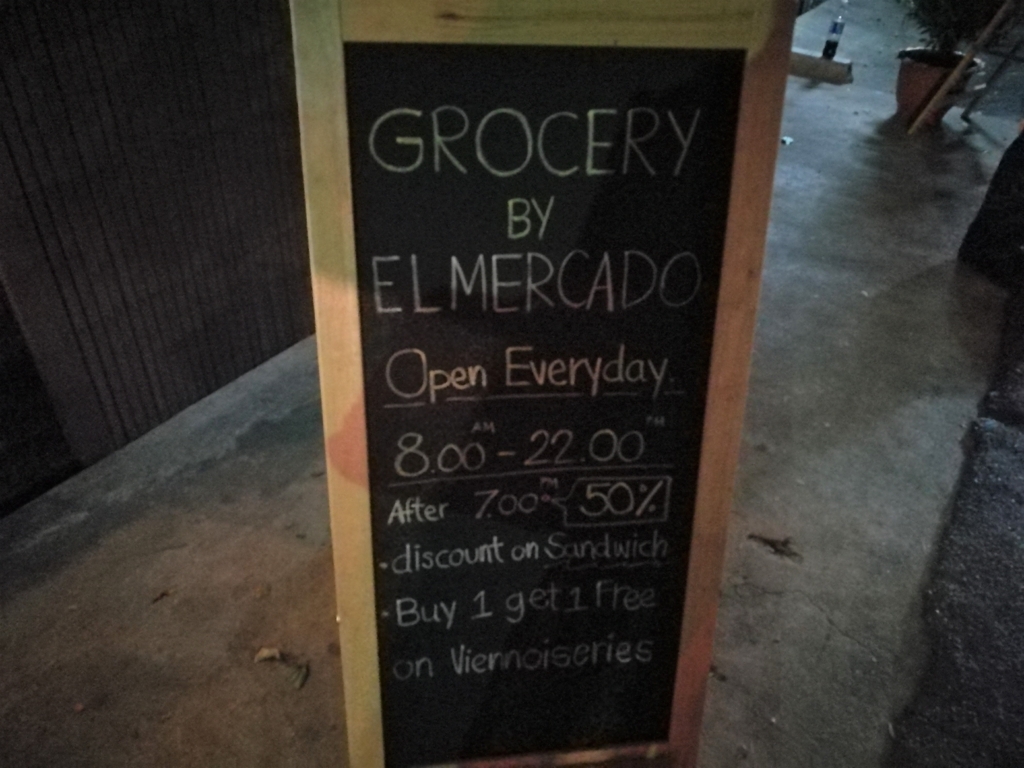 GROCERY
BY
ELMERCADO
Open Everyday.
8.00 AM - 22.00 PM
After 7.00 PM 50%
• discount on Sandwich
• Buy 1 get 1 Free
on Viennoiseries